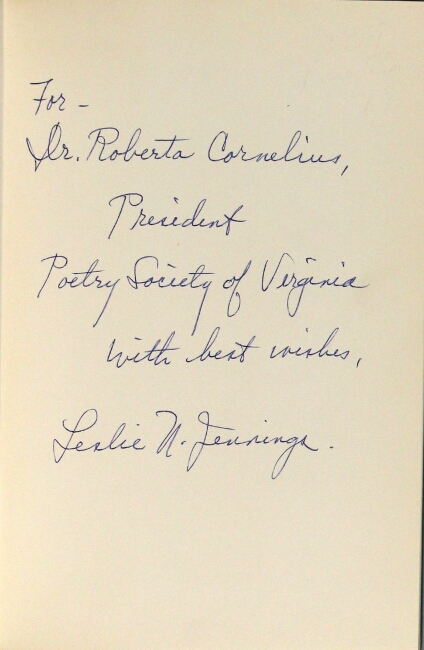 For -
Dr. Roberta Cornelius,
President
Poetry Society of Virginia
with best wishes,
Leslie N. Jennings.